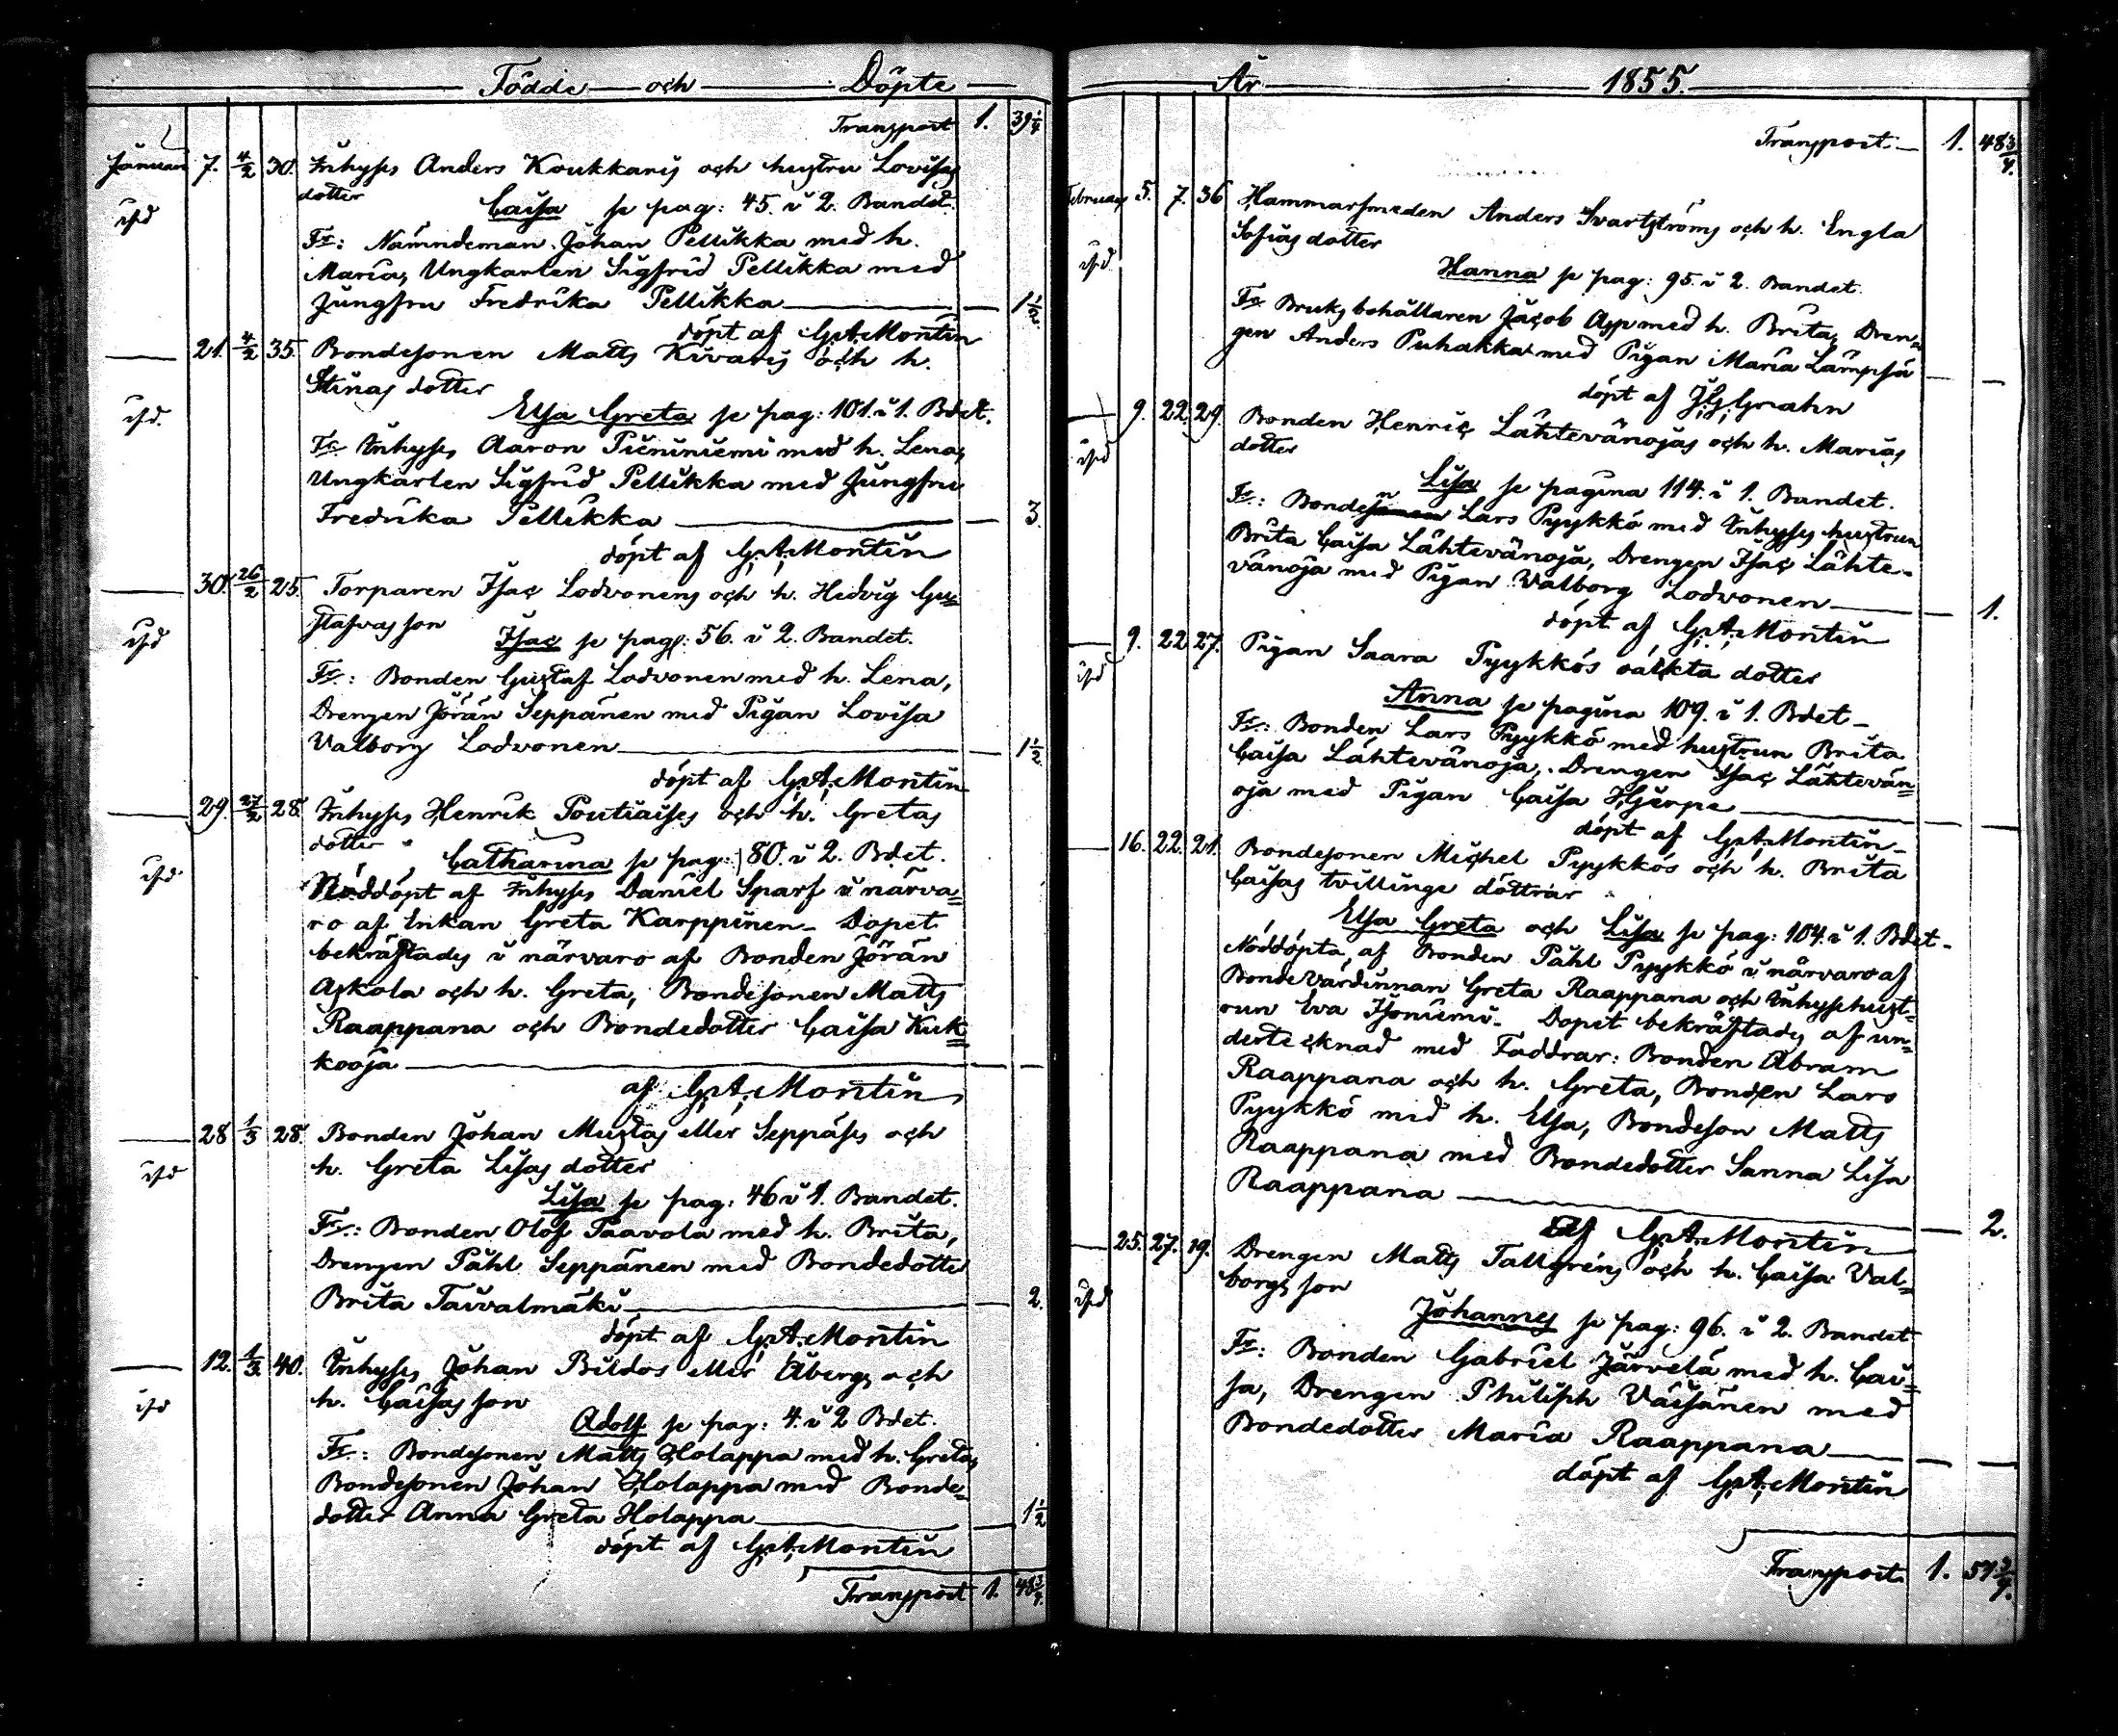 Födde och Döpte
Transport 1. 39 1/4
Januari 7. 4/2 30. Inhyses Anders Koukkaris och hustru Lovisas
dotter Caisa se pag: 45. i 2. Bandet.
Fr: Nämndeman Johan Pellikka med h.
Maria, Ungkarlen Sigfrid Pellikka med
Jungfru Fredrika Pellikka — 1 1/2.
döpt af G.A. Montin
21. 4/2 35. Bondesonen Matts Kivaris och h.
Stinas dotter
Elsa Greta se pag: 101. i 1. Bdet.
Fr Inhyses Aaron Pieniniemi med h. Lena,
Ungkarlen Sigfrid Pellikka med Jungfru
Fredrika Pellikka — 3.
döpt af G.A. Montin
30. 26/2 25. Torparen Isac Lodvonens och h. Hedvig Gu=
stafvas son Isac se pag: 56. i 2. Bandet.
Fr: Bonden Gustaf Lodvonen med h. Lena,
Drengen Jöran Seppänen med Pigan Lovisa
Valborg Lodvonen — 1 1/2
döpt af G.A. Montin
29. 27/2 28. Inhyses Henrik Poutiaises och h. Gretas
dotter Catharina se pag: 80. i 2. Bdet.
Nöddöpt af Inhyses Daniel Sparf i närva=
ro af Enkan Greta Karppinen. Dopet
bekräftades i närvaro af Bonden Jöran
Askola och h. Greta, Bondesonen Matts
Raappana och Bondedotter Caisa Kuk=
kooja —
af G.A. Montin
28 1/3 28. Bonden Johan Mustas eller Seppäses och
h. Greta Lisas dotter
Lisa se pag: 46 i 1. Bandet.
Fr: Bonden Olof Taavola med h. Brita,
Drengen Påhl Seppänen med Bondedotter
Brita Taivalmäki — 2.
döpt af G.A. Montin
12. 1/3. 40. Inhyses Johan Pildos eller Åbergs och
h. Caisas son
Adolf se pag: 4. i 2 Bdet.
Fr: Bondesonen Matts Holappa med h. Greta,
Bondesonen Johan Holappa med Bonde=
dotter Anna Greta Holappa — 1 1/2
döpt af G.A. Montin
Transport 1. 48 3/4.
År 1855.
Transport — 1. 48 3/4.
Februari 5. 7. 36 Hammarsmeden Anders Svartströms och h. Engla
Sofias dotter
Hanna se pag: 95. i 2. Bandet.
Fr Bruksbohållaren Jacob Asp med h. Brita, Dren=
gen Anders Puhakka med Pigan Maria Lämpsä —
döpt af J.G. Grahn
9. 22. 29. Bonden Henric Lähtevänojas och h. Marias
dotter
Lisa se pagina 114. i 1. Bandet.
Fr: Bonden Lars Pyykkö med Inhyses hustrun
Brita Caisa Lähtevänoja, Drengen Isac Lähte-
vänoja med Pigan Valborg Lodvonen — 1.
döpt af G.A. Montin
9. 22 27. Pigan Saara Pyykkös oäkta dotter
Anna se pagina 109. i 1. Bdet –
Fr: Bonden Lars Pyykkö med hustrun Brita
Caisa Lähtevänoja, Drengen Isac Lähtevän=
oja med Pigan Caisa Hjerpe —
döpt af G.A. Montin –
16. 22. 21. Bondesonen Michel Pyykkös och h. Brita
Caisas tvillinge döttrar
Elsa Greta och Lisa se pag: 104. i 1. Bdet –
Nöddöpta, af Bonden Påhl Pyykkö i närvaro af
Bondevärdinnan Greta Raappana och Inhyseshust=
run Eva Isoniemi. Dopet bekräftades af un=
dertecknad med Faddrar: Bonden Abram
Raappana och h. Greta, Bonden Lars
Pyykkö med h. Elsa, Bondeson Matts
Raappana med Bondedotter Sanna Lisa
Raappana — 2.
Af G.A. Montin
25. 27. 19. Drengen Matts Tallgréns och h. Caisa Val=
borgs son
Johannes se pag: 96. i 2. Bandet
Fr: Bonden Gabriel Järvelä med h. Cai=
sa, Drengen Philiph Väisänen med
Bondedotter Maria Raappana —
döpt af G.A. Montin
Transport 1. 51 3/4.